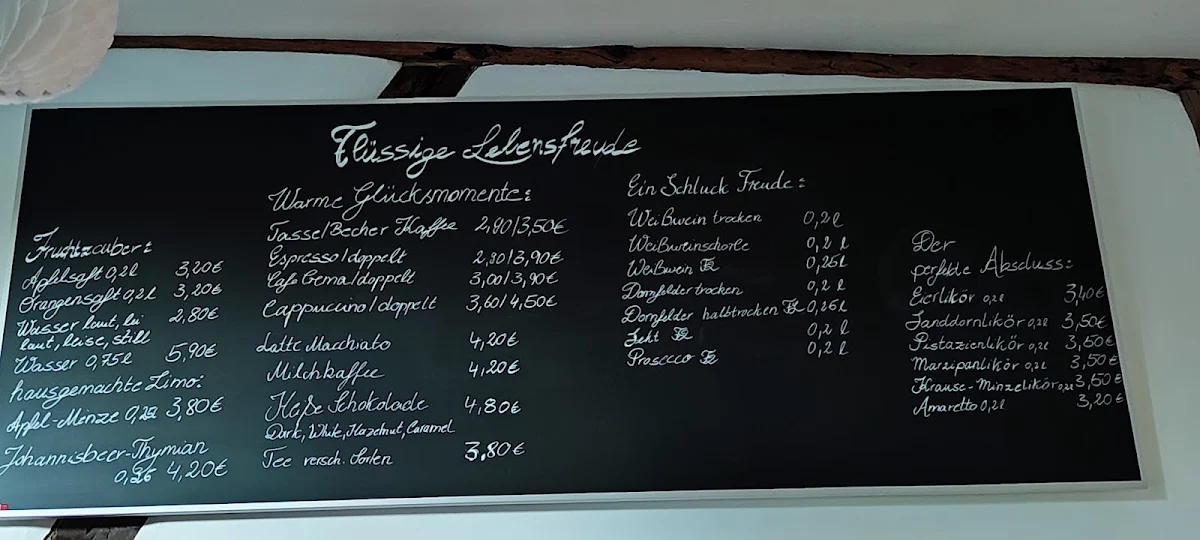 Flüssige Lebensfreude
Fruchtzauber:
Apfelsaft 0,2l 3,20€
Orangensaft 0,2l 3,20€
Wasser laut, lei 2,80€
laut, leise, still
Wasser 0,75l 5,90€
hausgemachte Limo:
Apfel-Minze 3,80€
Johannisbeer-Thymian
4,20€
Warme Glücksmomente:
Tasse/Becher Kaffee 2,90/3,50€
Espresso/doppelt 2,90/3,90€
Cafe Crema/doppelt 3,00/3,90€
Cappuccino/doppelt 3,60/4,50€
Latte Macchiato 4,20€
Milchkaffee 4,20€
Heiße Schokolade 4,80€
Dark, White, Hazelnut, Caramel
Tee versch. Sorten 3,80€
Ein Schluck Freude:
Weißwein trocken 0,2l
Weißweinschorle 0,2l
Weißwein 0,25l
Dornfelder trocken 0,2l
Dornfelder halbtrocken 0,25l
Sekt 0,2l
Prosecco 0,2l
Der
perfekte Abschluss:
Eierlikör 0,2l 3,40€
Sanddornlikör 0,2l 3,50€
Pistazienlikör 0,2l 3,50€
Marzipanlikör 0,2l 3,50€
Krause-Minzelikör 0,2l 3,50€
Amaretto 0,2l 3,20€